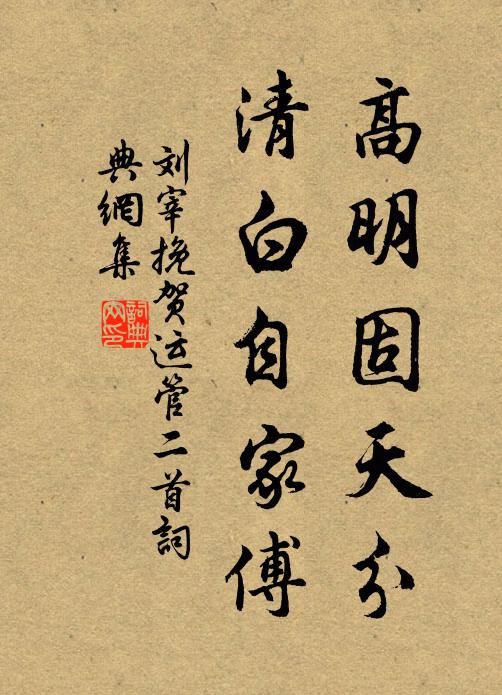 高明固天分
清白自家傅
刘宰挽贺运管二首詞
典網集
詞典
网印